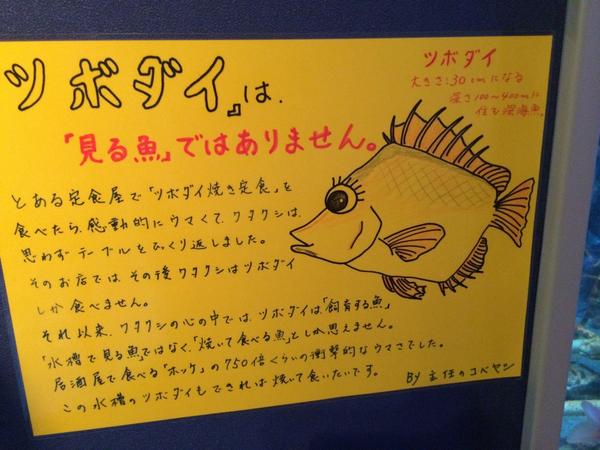 ツボダイ』は、
「見る魚」ではありません。
ツボダイ
大きさ:30cmになる
深さ100～400mに
住む深海魚。
とある定食屋で「ツボダイ焼き定食」を
食べたら、感動的にウマくて、ワタクシは、
思わずテーブルをひっくり返しました。
そのお店では、その後ワタクシはツボダイ
しか食べません。
それ以来、ワタクシの心の中では、ツボダイは、「飼育する魚」
「水槽で見る魚」ではなく、「焼いて食べる魚」としか思えません。
居酒屋で食べる「ホッケ」の750倍くらいの衝撃的なウマさでした。
この水槽のツボダイもできれば焼いて食いたいです。
BY 主任のコベヤン